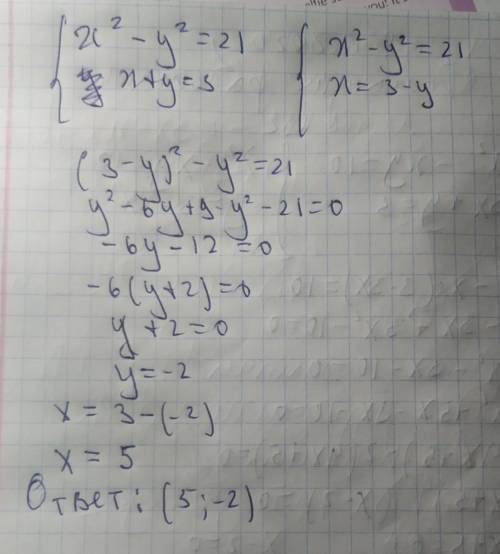 x² - y² = 21
x + y = 3
x² - y² = 21
x = 3 - y
(3 - y)² - y² = 21
y² - 6y + 9 - y² - 21 = 0
-6y - 12 = 0
-6(y + 2) = 0
y + 2 = 0
y = -2
x = 3 - (-2)
x = 5
Ответ: (5; -2)